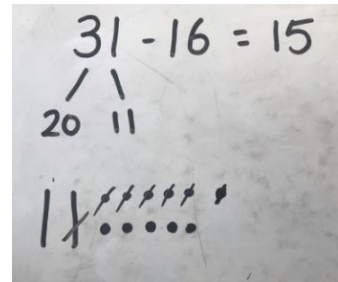 31 - 16 = 15
20 11